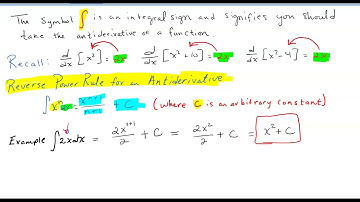 The symbol ∫ is an integral sign and signifies you should
take the antiderivative of a function.
Recall: d/dx [x²] = 2x d/dx [x²+10] = 2x d/dx [x²-4] = 2x
Reverse Power Rule for an Antiderivative
∫ xⁿ dx = xⁿ⁺¹/n+1 + C (where C is an arbitrary constant)
Example ∫ 2x dx = 2x¹⁺¹/2 + C = 2x²/2 + C = x² + C